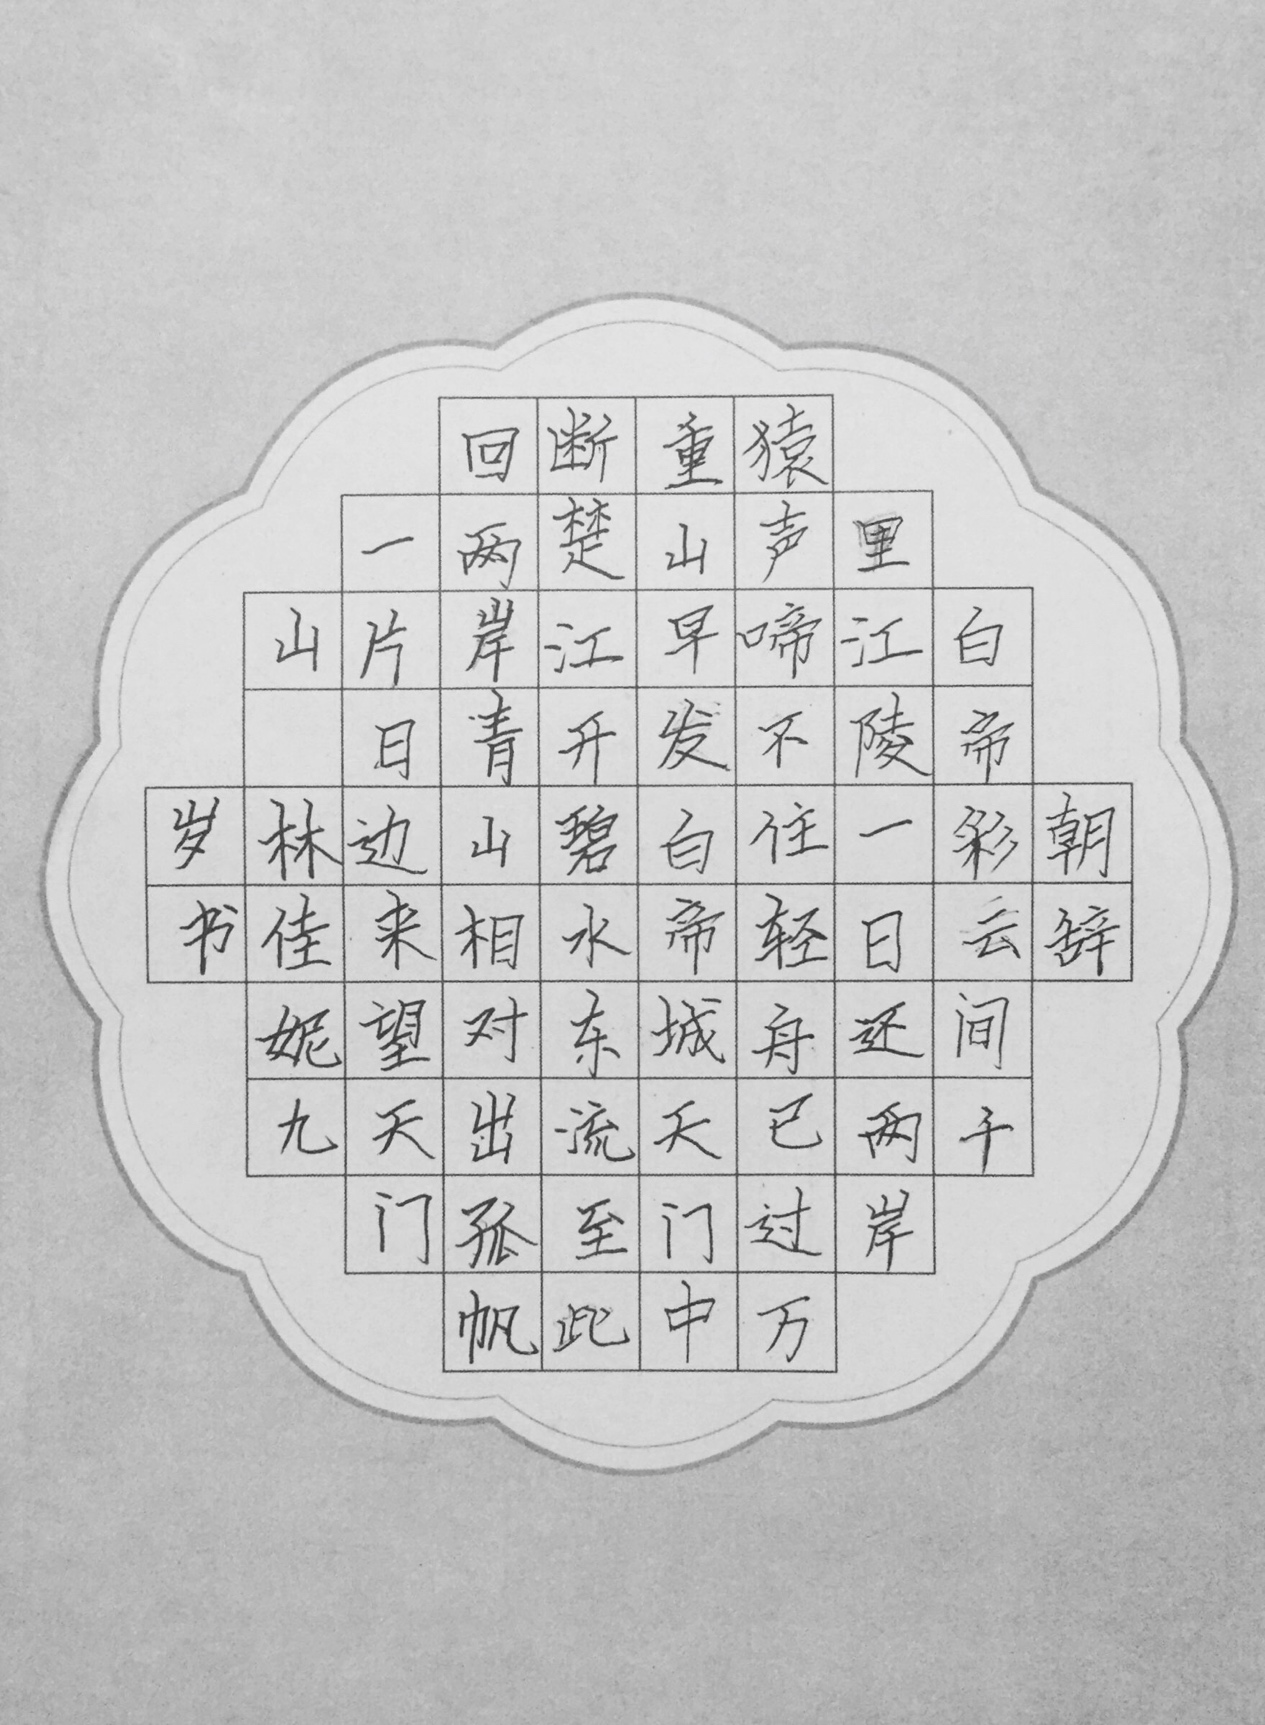 朝辞
白帝彩云间千
里江陵一日还两岸
猿声啼不住轻舟已过万
重山早发白帝城天门中
断楚江开碧水东流至此
回两岸青山相对出孤帆
一片日边来望天门
山 林佳妮九
岁书